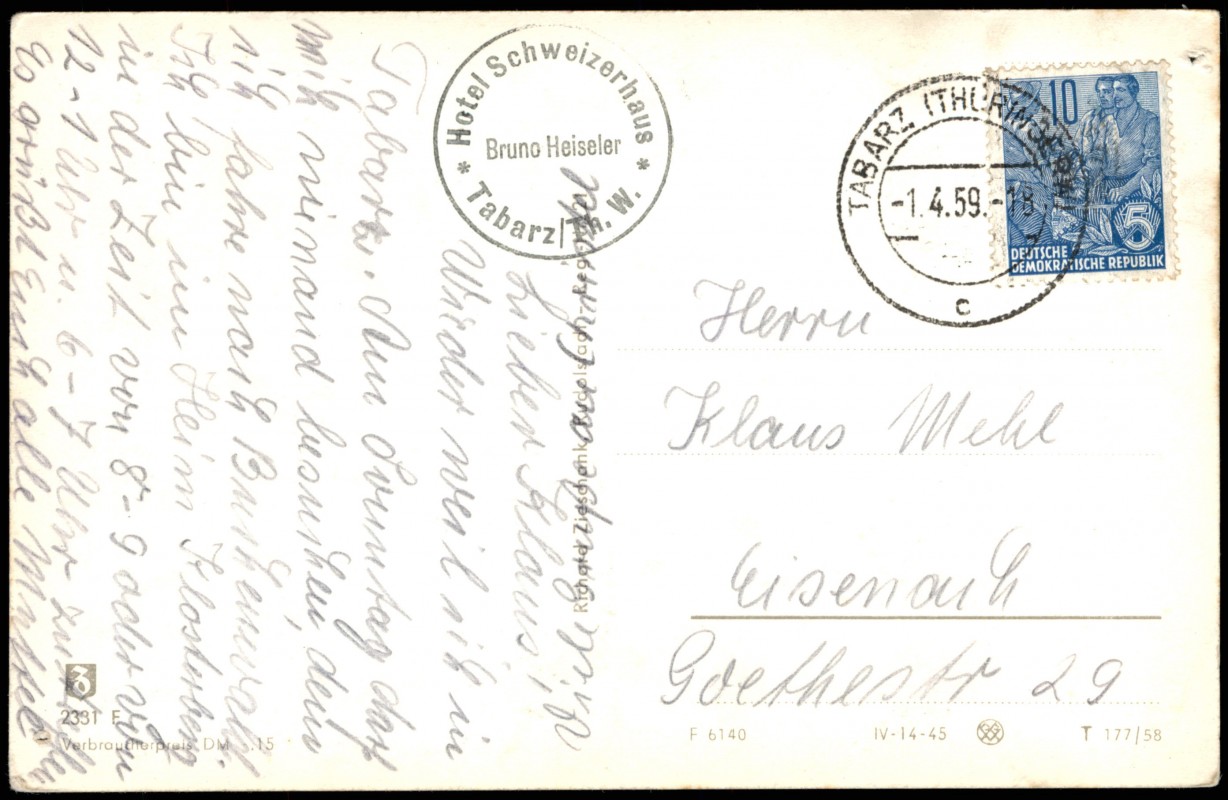 Hotel Schweizerhaus
Bruno Heiseler
* Tabarz/Th. W. *
TABARZ (THÜRINGER WALD)
-1.4.59.-18
c
10
5
DEUTSCHE
DEMOKRATISCHE REPUBLIK
Lieber Klaus,
Wieder weil ich in
Tabarz. Am Sonntag darf
mich niemand besuchen, denn
ich fahre nach Buchenwald.
Ich bin im Heim Klosterberg
in der Zeit von 8-9 oder von
12-1 Uhr u. 6-7 Uhr
Es grüßt Euch alle
Herrn
Klaus Mehl
Eisenach
Goethestr 29
Richard Zieschank, Rudolstadt
2331 F
Verbraucherpreis DM .15
F 6140
IV-14-45
T 177/58